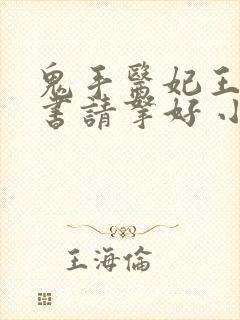 鬼手醫妃王
書請拏好小
王海倫